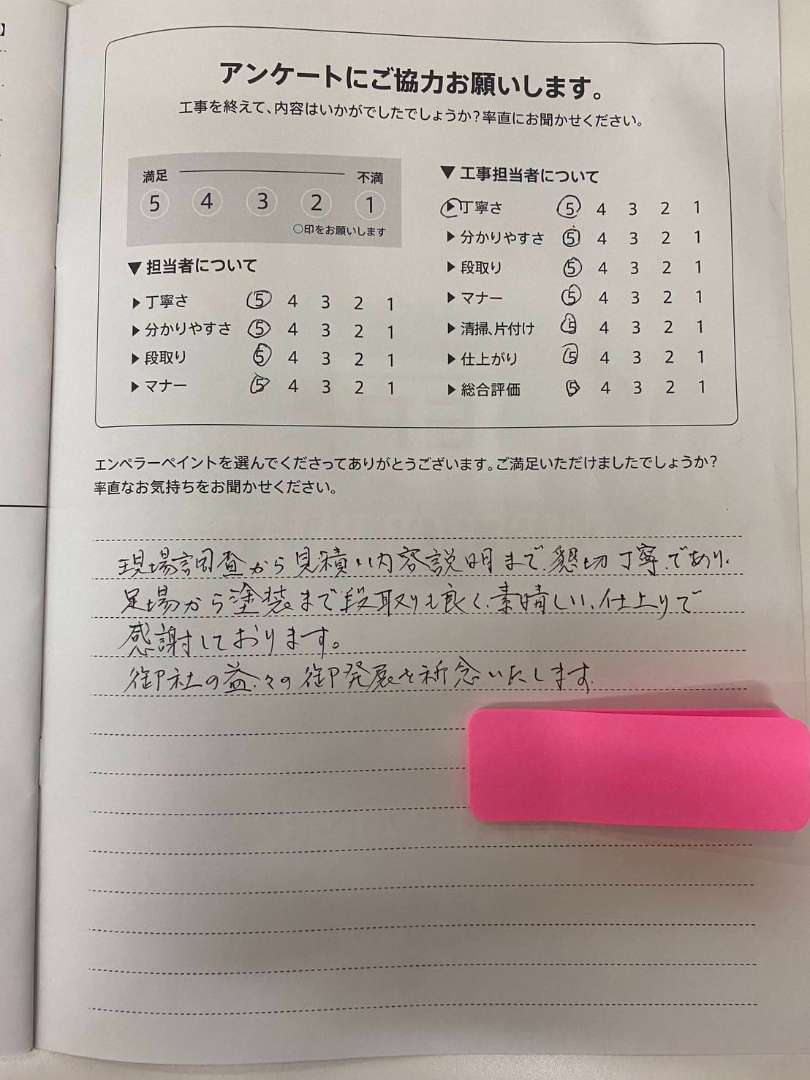 】
アンケートにご協力お願いします。
工事を終えて、内容はいかがでしたでしょうか？率直にお聞かせください。
満足 不満
5 4 3 2 1
○印をお願いします
▼担当者について
▶丁寧さ 5 4 3 2 1
▶分かりやすさ 5 4 3 2 1
▶段取り 5 4 3 2 1
▶マナー 5 4 3 2 1
▼工事担当者について
▶丁寧さ 5 4 3 2 1
▶分かりやすさ 5 4 3 2 1
▶段取り 5 4 3 2 1
▶マナー 5 4 3 2 1
▶清掃、片付け 5 4 3 2 1
▶仕上がり 5 4 3 2 1
▶総合評価 5 4 3 2 1
エンペラーペイントを選んでくださってありがとうございます。ご満足いただけましたでしょうか？
率直なお気持ちをお聞かせください。
現場調査から見積り内容説明まで、懇切丁寧であり、
足場から塗装まで段取りも良く、素晴しい、仕上りで
感謝しております。
御社の益々の御発展を祈念いたします。